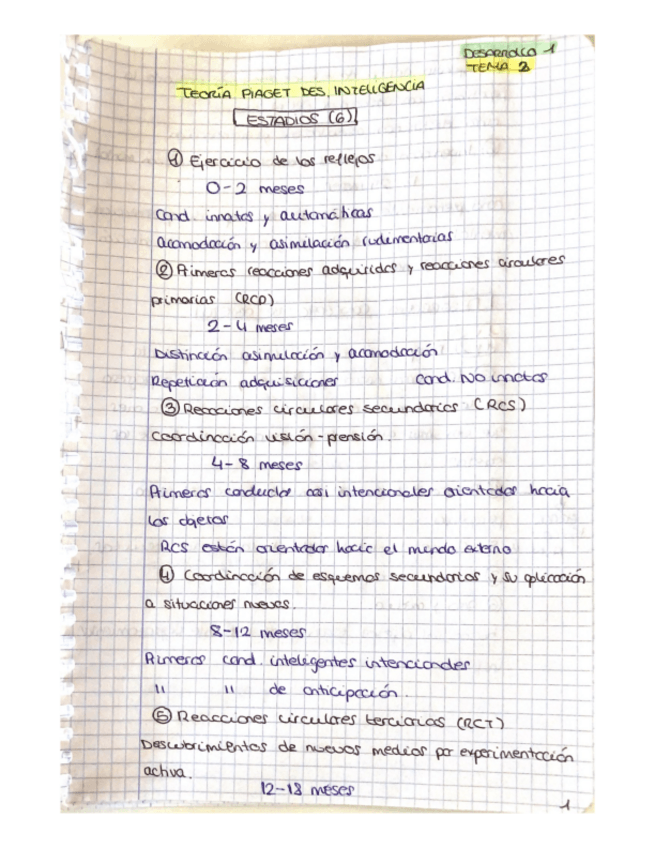 DESARROLLO 1
TEMA 2
TEORÍA PIAGET DES. INTELIGENCIA
ESTADIOS (6)
① Ejercicio de los reflejos
0-2 meses
Cond. innatas y automáticas
acomodación y asimilación rudimentarias
② Primeras reacciones adquiridas y reacciones circulares
primarias (RCP)
2-4 meses
Distinción asimilación y acomodación
Repetición adquisiciones cond. NO innatas
③ Reacciones circulares secundarias (RCS)
Coordinación visión-prensión.
4-8 meses
Primeras conductas casi intencionales orientadas hacia
los objetos
RCS están orientadas hacia el mundo externo
④ Coordinación de esquemas secundarios y su aplicación
a situaciones nuevas.
8-12 meses
Primeras cond. inteligentes intencionales
" " de anticipación.
⑤ Reacciones circulares terciarias (RCT)
Descubrimientos de nuevos medios por experimentación
activa.
12-18 meses
1